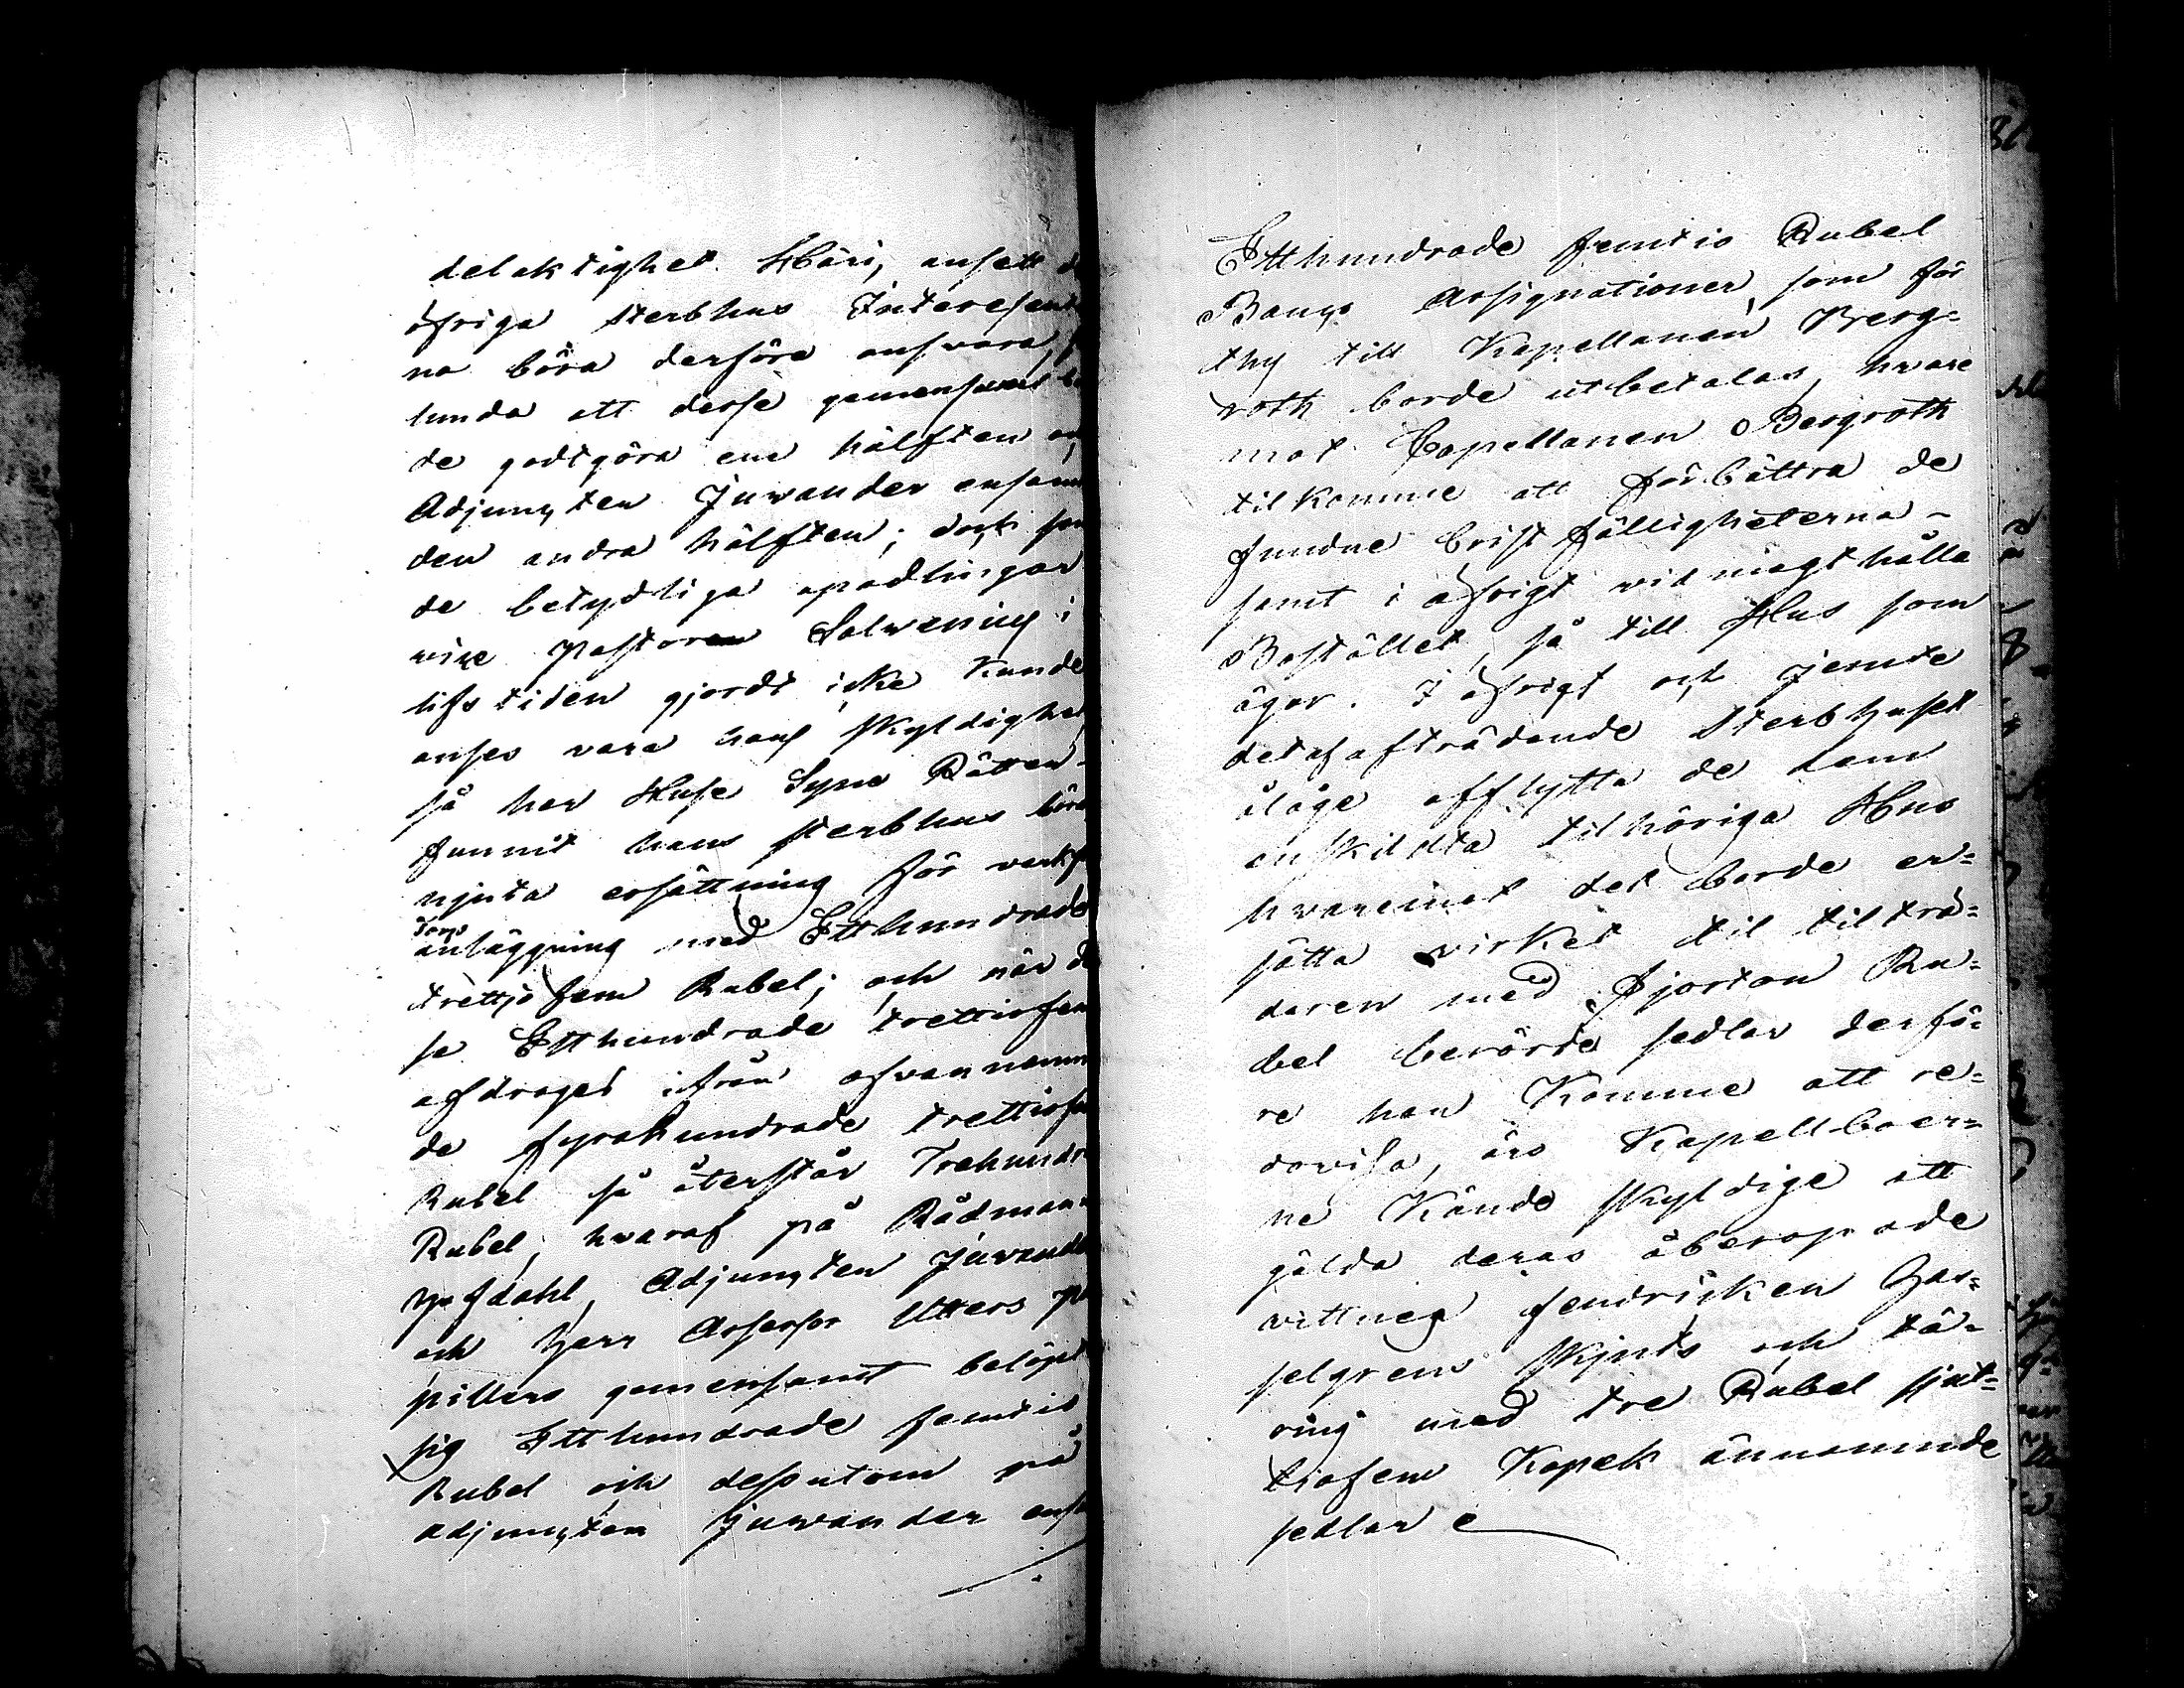 delaktighet Häri, ansett d
öfriga sterbhus Interesent
na böra derföre ansvara,
lunda att desse gemensamt b
de godtgöra ene hälften o
Adjuncten Juvander ensam
den andra hälften; doch som
de betydliga opodlingar
vice Pastoren Salvenius i
lifstiden gjordt icke Kunde
anses vara hans skyldighet,
så har Huse Syne Rätten
funnit hans sterbhus böra
njuta ersättning för verks
Torps
anläggning med Etthundrade
trettjo fem Rubel; och när de
se Etthundrade trettiofem
afdrages ifrån ofvannemn
de fyrahundrade trettiofem
Rubel så återstår Trehundra
Rubel, hvaraf på Rådmann
Adjuncten Juvander
och Herr Assessor Utters p
pillers gemensamt belöper
sig Etthundrade femtio
Rubel och dessutom på
adjuncten Juvander ensa
Etthundrade femtio Rubel
Banco Assignationer, som för
thy till Kapellanen Berg=
roth borde utbetalas, hvare
mot Capellanen Bergroth
tilkomme att förbättra de
fundne bristfälligheterna
samt i öfrigt vid magt hålla
Bostället så till Hus som
ägor. I öfrigt och jemte
det af afträdande Sterbhuset
ålåge afflytta de dem
enskildta tilhöriga Hus
hvareinet det borde er=
sätta virket til tilträ=
daren med Fjorton Ru=
bel berörde sedlar derfö=
re han Komme att re=
dovisa, äro Kapellboer=
ne Kände skyldige att
gälda deras åberopade
vittnes fendricken Has=
selgrens skjuts och tä=
ring med tre Rubel sjut=
tiofem Kopek ännämnde
sedlar